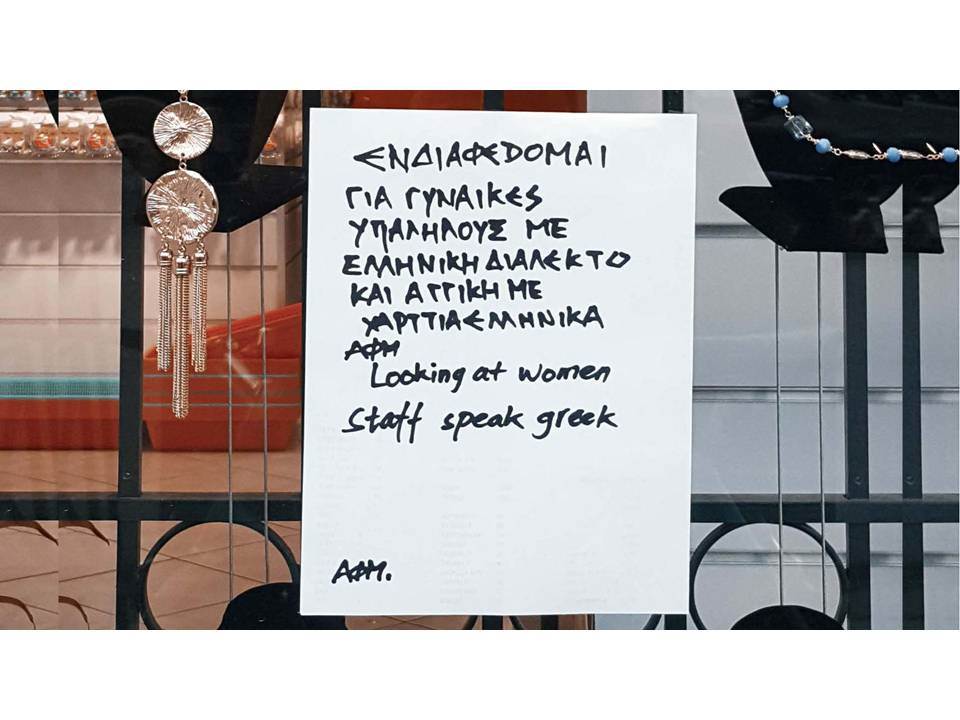 ΕΝΔΙΑΦΕDΟΜΑΙ
ΓΙΑ ΓΥΝΑΙΚΕS
ΥΠΑΛΗΛΟΥΣ ΜΕ
ΕΛΛΗΝΙΚΗ ΔΙΑΛΕΚΤΟ
ΚΑΙ ΑΤΤΙΚΗ ΜΕ
ΧΑΡΤΤΙΑ ΕΛΛΗΝΙΚΑ
ΑΦΜ
Looking at women
Staff speak greek
ΑΦΜ.